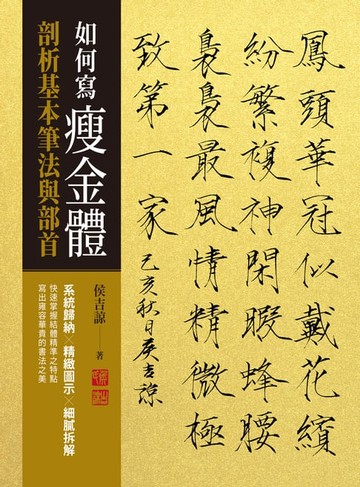 鳳頭華冠似戴花繽
紛繁複神閑暇蜂腰
裊裊最風情精微極
致第一家
己亥秋日侯吉諒
如何寫
瘦金體
剖析基本筆法與部首
侯吉諒——著
系統歸納 精緻圖示╳細膩拆解
快速掌握結體精準之特點
寫出雍容華貴的書法之美